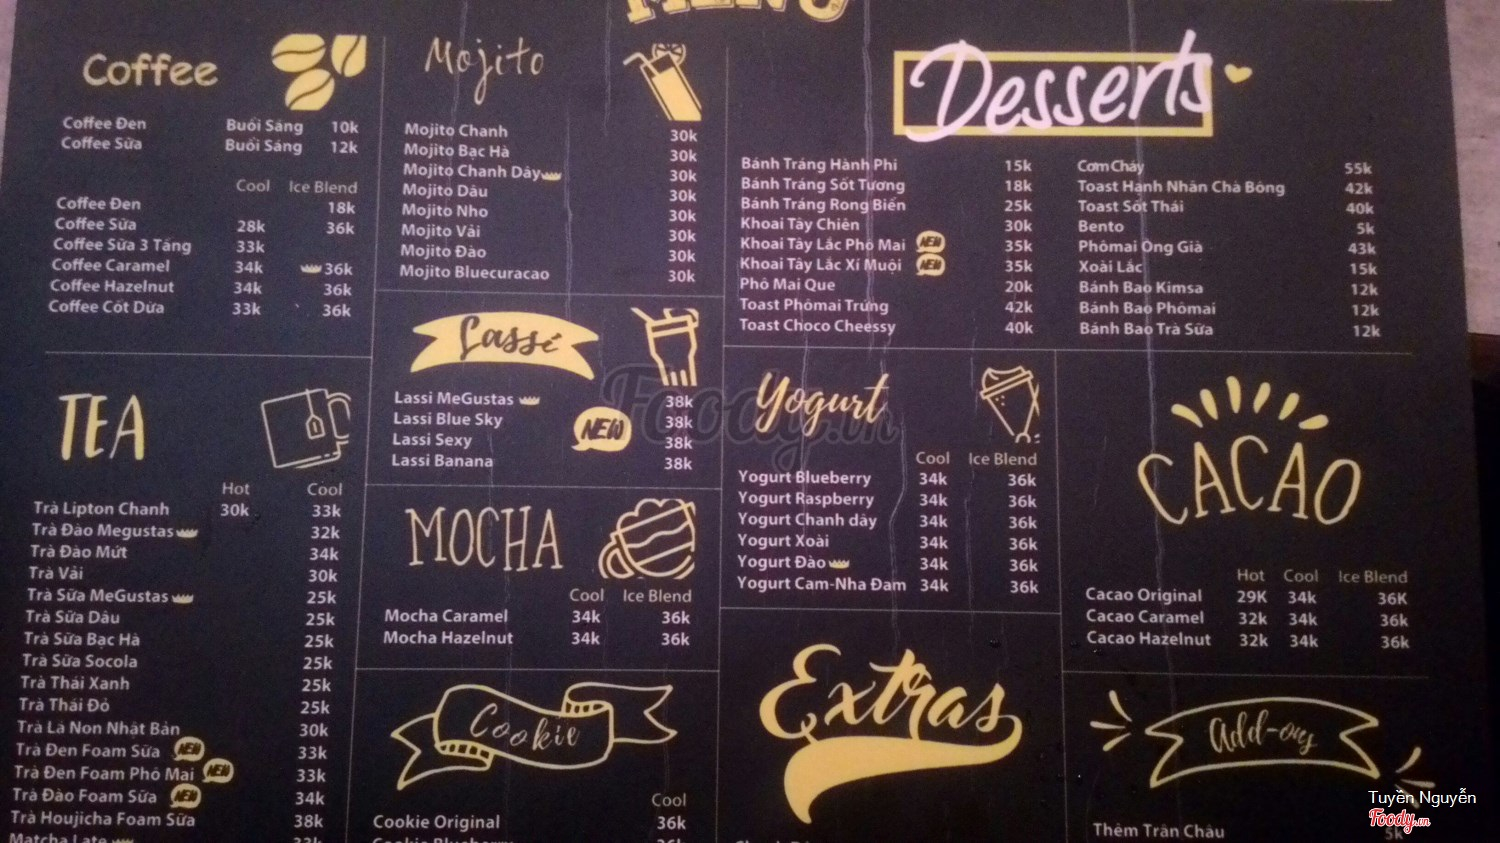 MENU
Coffee
Coffee Đen Buổi Sáng 10k
Coffee Sữa Buổi Sáng 12k
Cool Ice Blend
Coffee Đen 18k
Coffee Sữa 28k 36k
Coffee Sữa 3 Tầng 33k
Coffee Caramel 34k 36k
Coffee Hazelnut 34k 36k
Coffee Cốt Dừa 33k 36k
TEA
Hot Cool
Trà Lipton Chanh 30k 33k
Trà Đào Megustas 32k
Trà Đào Mứt 34k
Trà Vải 30k
Trà Sữa MeGustas 25k
Trà Sữa Dâu 25k
Trà Sữa Bạc Hà 25k
Trà Sữa Socola 25k
Trà Thái Xanh 25k
Trà Thái Đỏ 25k
Trà Lá Non Nhật Bản 30k
Trà Đen Foam Sữa NEW 33k
Trà Đen Foam Phô Mai NEW 33k
Trà Đào Foam Sữa NEW 34k
Trà Houjicha Foam Sữa 38k
Matcha Late 33k
Mojito
Mojito Chanh 30k
Mojito Bạc Hà 30k
Mojito Chanh Dây 30k
Mojito Dâu 30k
Mojito Nho 30k
Mojito Vải 30k
Mojito Đào 30k
Mojito Bluecuracao 30k
Lassi
Lassi MeGustas 38k
Lassi Blue Sky 38k
Lassi Sexy 38k
Lassi Banana 38k
NEW
MOCHA
Cool Ice Blend
Mocha Caramel 34k 36k
Mocha Hazelnut 34k 36k
Cookie
Cool
Cookie Original 36k
Cookie Blueberry 36k
Desserts
Bánh Tráng Hành Phi 15k
Bánh Tráng Sốt Tương 18k
Bánh Tráng Rong Biển 25k
Khoai Tây Chiên 30k
Khoai Tây Lắc Phô Mai NEW 35k
Khoai Tây Lắc Xí Muội NEW 35k
Phô Mai Que 20k
Toast Phômai Trứng 42k
Toast Choco Cheessy 40k
Cơm Cháy 55k
Toast Hạnh Nhân Chà Bông 42k
Toast Sốt Thái 40k
Bento 5k
Phômai Ông Già 43k
Xoài Lắc 15k
Bánh Bao Kimsa 12k
Bánh Bao Phômai 12k
Bánh Bao Trà Sữa 12k
Yogurt
Cool Ice Blend
Yogurt Blueberry 34k 36k
Yogurt Raspberry 34k 36k
Yogurt Chanh dây 34k 36k
Yogurt Xoài 34k 36k
Yogurt Đào 34k 36k
Yogurt Cam-Nha Đam 34k 36k
Extras
CACAO
Hot Cool Ice Blend
Cacao Original 29K 34k 36K
Cacao Caramel 32k 34k 36k
Cacao Hazelnut 32k 34k 36k
Add-ons
Thêm Trân Châu 5k
Foody.vn
Tuyền Nguyễn
Foody.vn